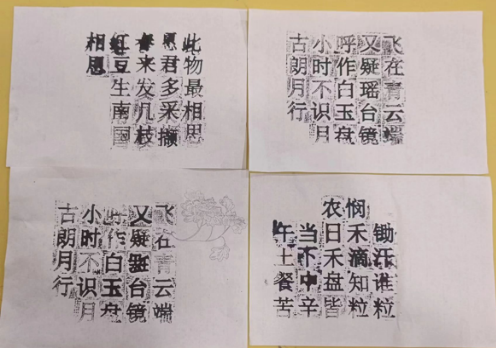 相思
红豆生南国
春来发几枝
愿君多采撷
此物最相思
古朗月行
小时不识月
呼作白玉盘
又疑瑶台镜
飞在青云端
古朗月行
小时不识月
作白玉盘
又疑台镜
飞在青云端
悯农
锄禾日当午
汗滴禾下土
谁知盘中餐
粒粒皆辛苦